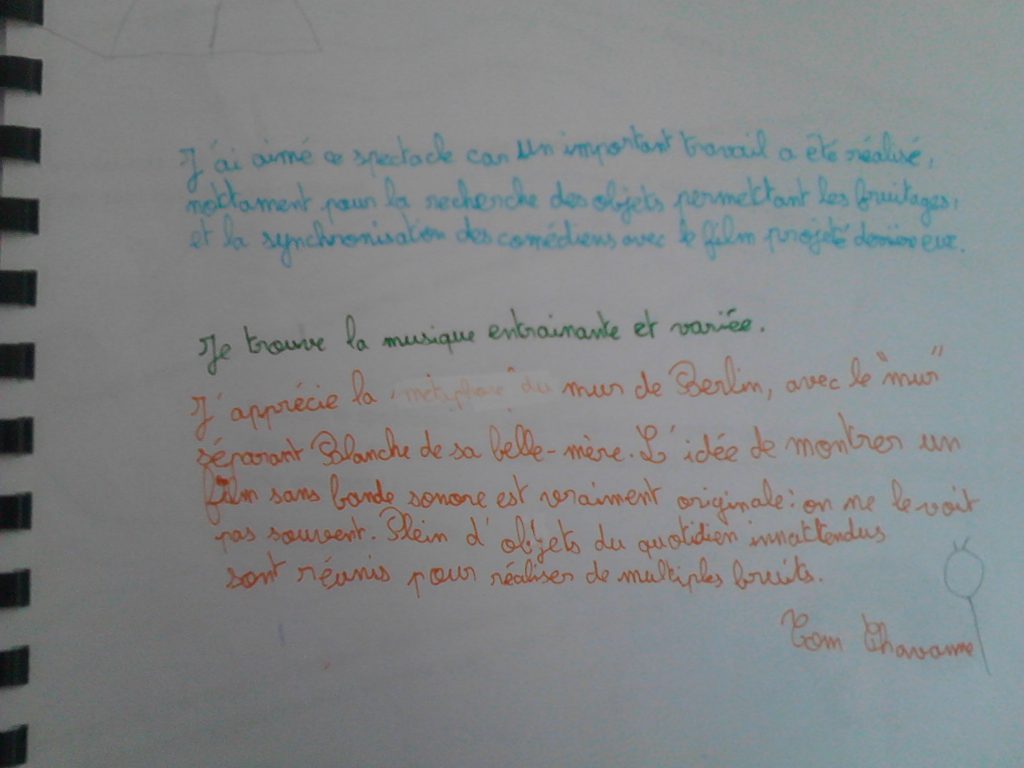 J'ai aimé ce spectacle car un important travail a été réalisé,
nottament pour la recherche des objets permettant les bruitages,
et la synchronisation des comédiens avec le film projeté derrière eux.
Je trouve la musique entrainante et variée.
J'apprécie la "métaphore" du mur de Berlin, avec le "mur"
séparant Blanche de sa belle-mère. L'idée de montrer un
film sans bande sonore est vraiment originale: on ne le voit
pas souvent. Plein d'objets du quotidien innattendus
sont réunis pour réaliser de multiples bruits.
Tom